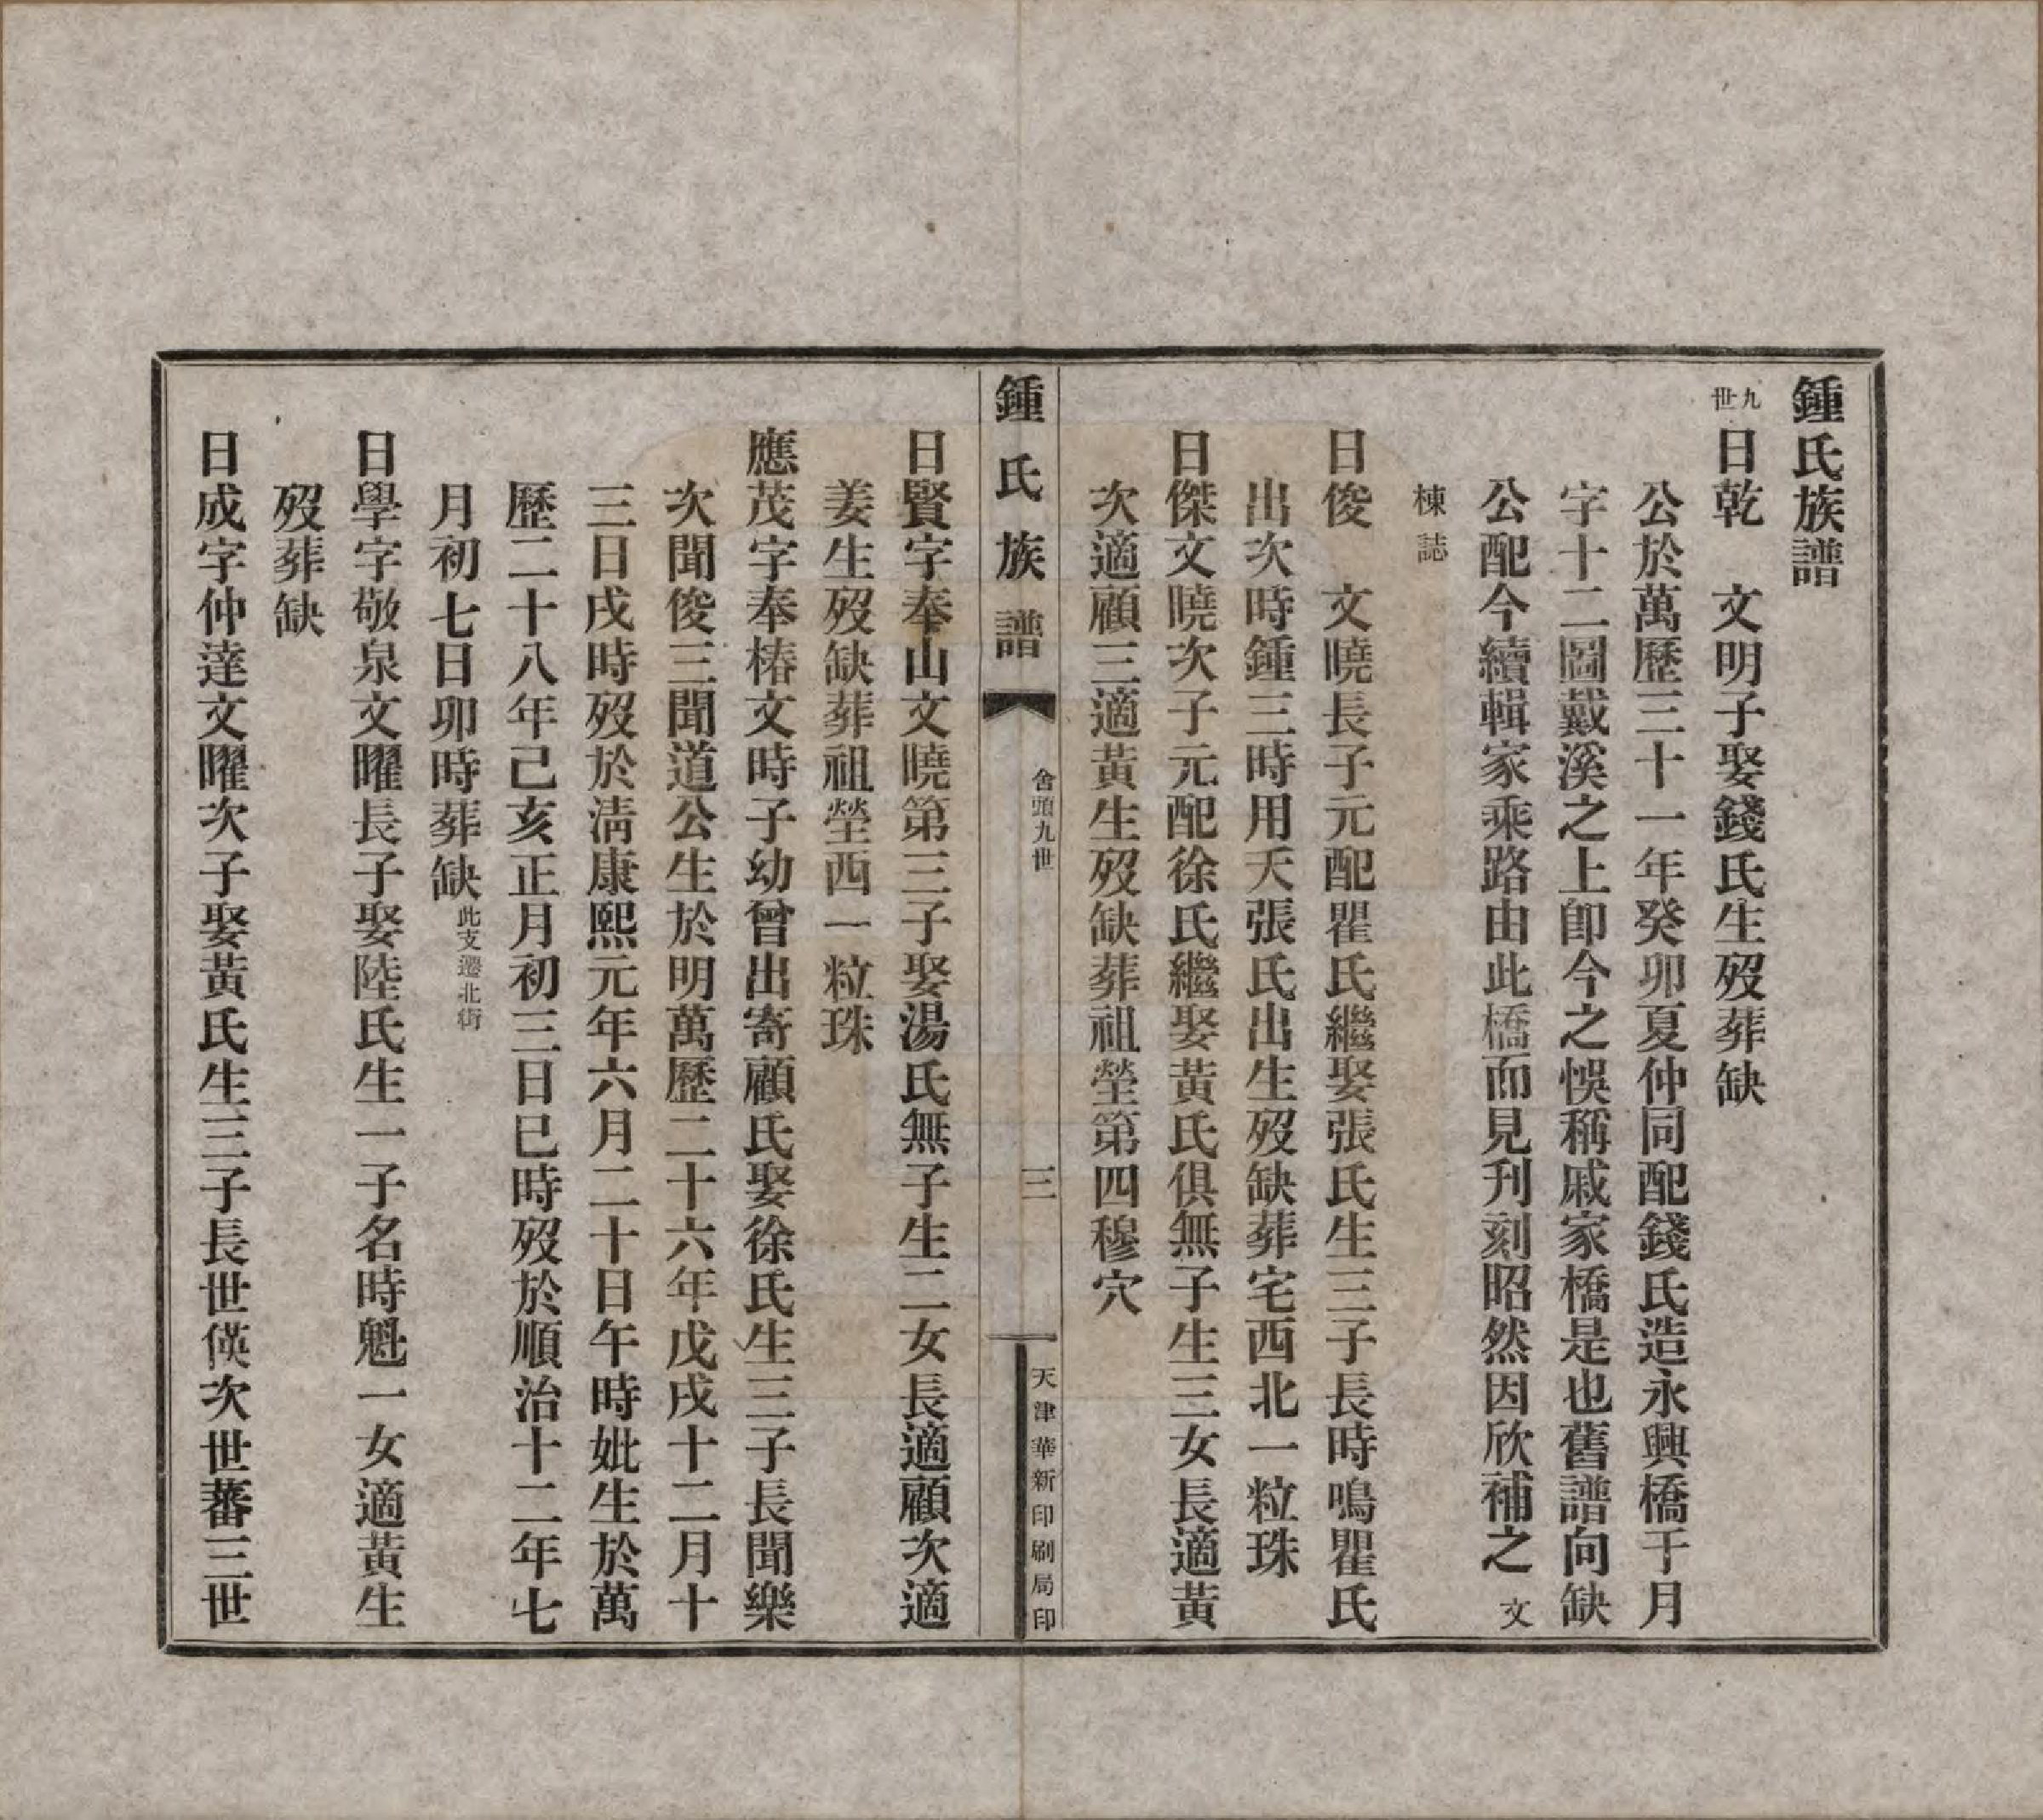 鍾氏族譜
九世 日乾　文明子娶錢氏生歿葬缺
公於萬歷三十一年癸卯夏仲同配錢氏造永興橋于月
字十二圖戴溪之上卽今之悞稱戚家橋是也舊譜向缺
公配今續輯家乘路由此橋而見刋刻昭然因欣補之 文
棟誌
日俊　文曉長子元配瞿氏繼娶張氏生三子長時鳴瞿氏
出次時鍾三時用天張氏出生歿缺葬宅西北一粒珠
日傑文曉次子元配徐氏繼娶黃氏俱無子生三女長適黃
次適顧三適黃生歿缺葬祖塋第四穆穴
鍾氏族譜
舍頭九世
三
天津華新印刷局印
日賢字奉山文曉第三子娶湯氏無子生二女長適顧次適
姜生歿缺葬祖塋西一粒珠
應茂字奉椿文時子幼曾出寄顧氏娶徐氏生三子長聞樂
次聞俊三聞道公生於明萬歷二十六年戊戌十二月十
三日戌時歿於淸康熙元年六月二十日午時妣生於萬
歷二十八年己亥正月初三日巳時歿於順治十二年七
月初七日卯時葬缺 此支遷北街
日學字敬泉文曜長子娶陸氏生一子名時魁一女適黃生
歿葬缺
日成字仲達文曜次子娶黃氏生三子長世偀次世蕃三世